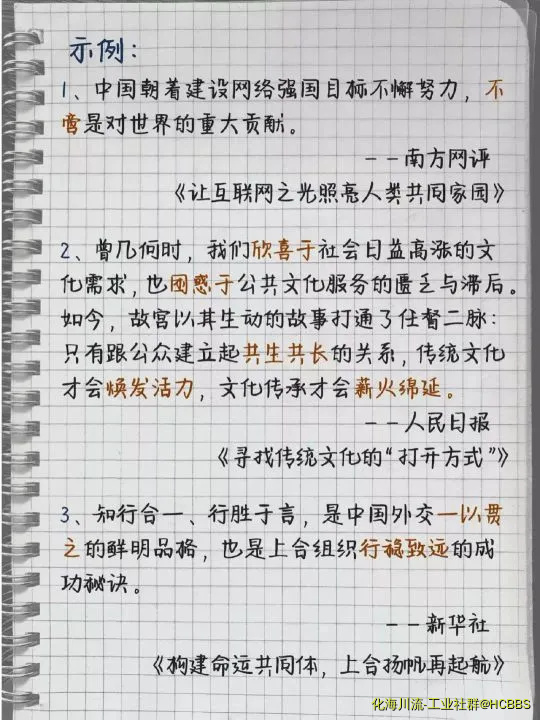 示例：
1、中国朝着建设网络强国目标不懈努力，不
啻是对世界的重大贡献。
——南方网评
《让互联网之光照亮人类共同家园》
2、曾几何时，我们欣喜于社会日益高涨的文
化需求，也困惑于公共文化服务的匮乏与滞后。
如今，故宫以其生动的故事打通了任督二脉：
只有跟公众建立起共生共长的关系，传统文化
才会焕发活力，文化传承才会薪火绵延。
——人民日报
《寻找传统文化的“打开方式”》
3、知行合一、行胜于言，是中国外交一以贯
之的鲜明品格，也是上合组织行稳致远的成
功秘诀。
——新华社
《构建命运共同体，上合扬帆再起航》
化海川流-工业社群@HCBBS